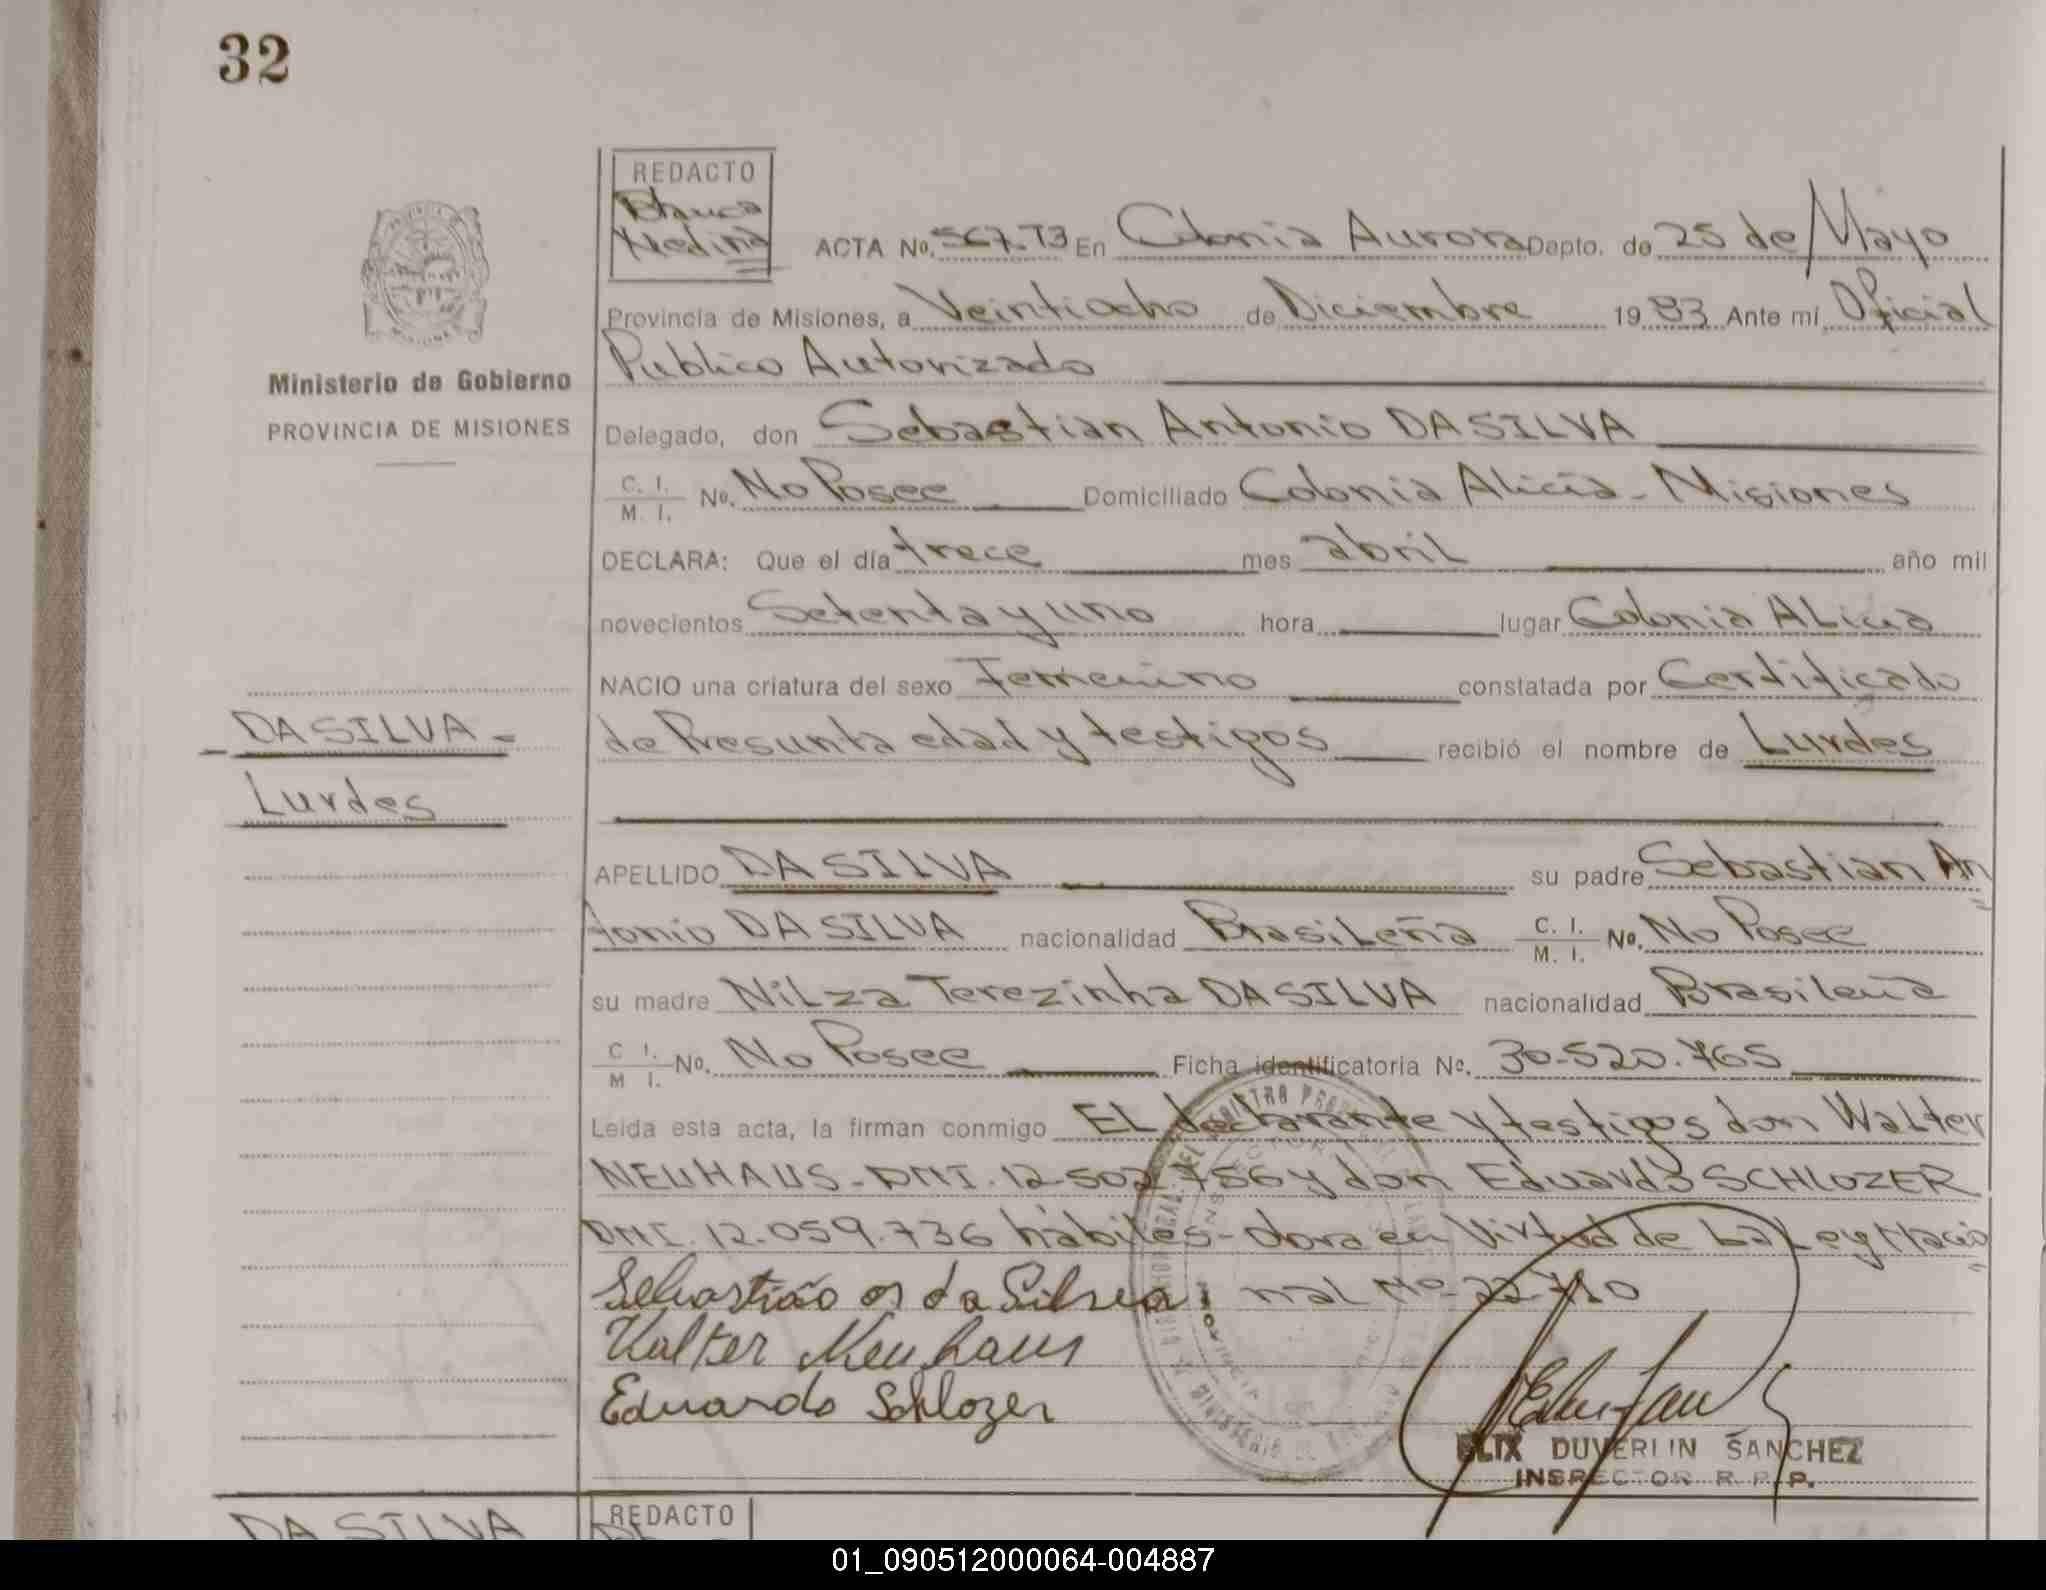 32
REDACTO
Blanca
Medina
ACTA No. 567-T3 En Colonia Aurora Depto. de 25 de Mayo
Provincia de Misiones, a Veintiocho de Diciembre 1983 Ante mi Oficial
Publico Autorizado
Ministerio de Gobierno
PROVINCIA DE MISIONES
Delegado, don Sebastian Antonio DA SILVA
C. I.
M. I. No. No Posee Domiciliado Colonia Alicia - Misiones
DECLARA: Que el día trece mes abril año mil
novecientos Setenta y uno hora lugar Colonia ALicia
NACIO una criatura del sexo Femenino constatada por Certificado
DA SILVA -
de Presunta edad y testigos recibió el nombre de Lurdes
Lurdes
APELLIDO DA SILVA su padre Sebastian An
tonio DA SILVA nacionalidad BrasiLeña C. I. M. I. No. No Posee
su madre NiLza Terezinha DA SILVA nacionalidad Brasileña
C I. M I. No. No Posee Ficha identificatoria No. 30-520.765
Leida esta acta, la firman conmigo EL declarante y testigos don WaLter
NEUHAUS - DMI. 12-502.756 y don Eduardo SCHLOZER
DMI. 12.059.736 hábiles - obra en Virtud de La Ley Nacio
nal No-22.710
Sebastião da Silva
Walter Neuhaus
Eduardo Schlozer
ELIX DUVERLIN SANCHEZ
INSPECTOR R. P. P.
DA SILVA
REDACTO
01_090512000064-004887